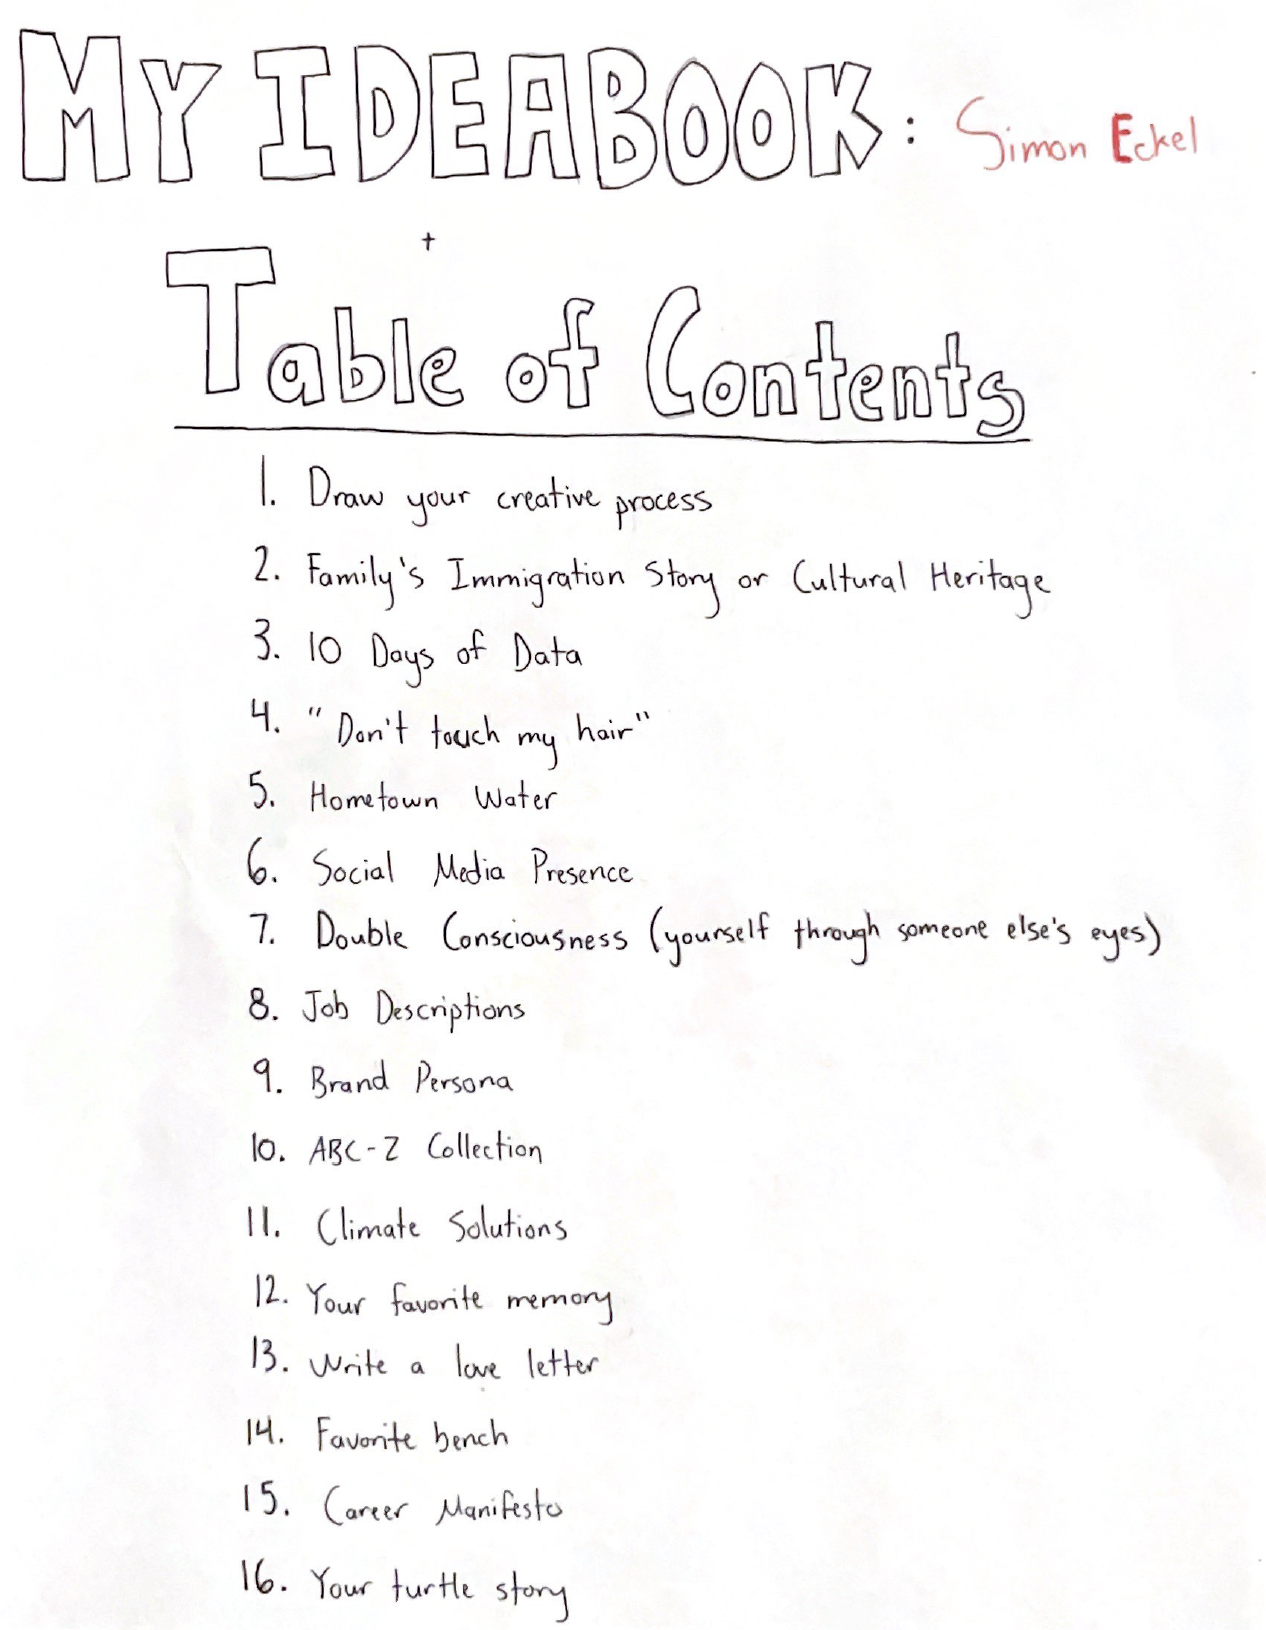 MY IDEABOOK: Simon Eckel
Table of Contents
1. Draw your creative process
2. Family's Immigration Story or Cultural Heritage
3. 10 Days of Data
4. "Don't touch my hair"
5. Hometown Water
6. Social Media Presence
7. Double Consciousness (yourself through someone else's eyes)
8. Job Descriptions
9. Brand Persona
10. ABC-Z Collection
11. Climate Solutions
12. Your favorite memory
13. Write a love letter
14. Favorite bench
15. Career Manifesto
16. Your turtle story